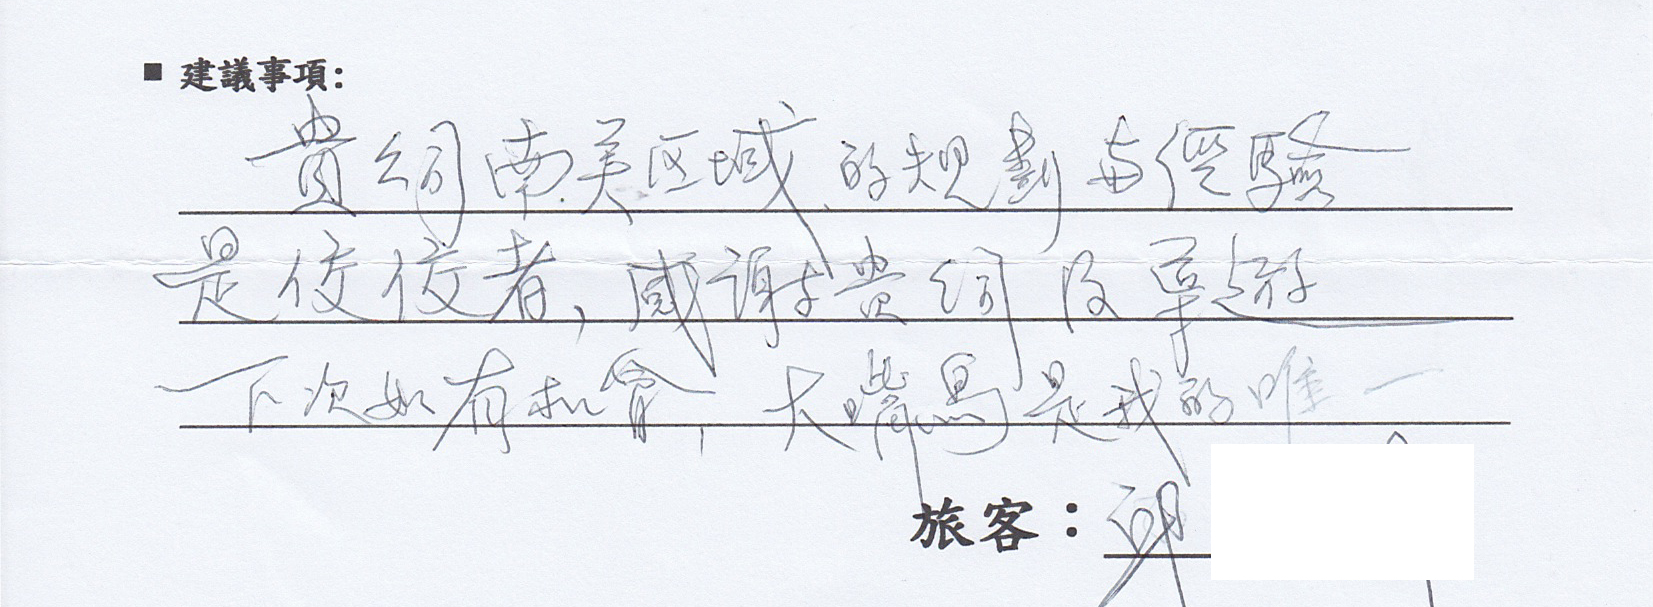 ■ 建議事項:
貴公司南美区域的規劃与經驗
是佼佼者,感謝貴公司及草遊
下次如有机會,大嘴鳥是我的唯一
旅客:邱